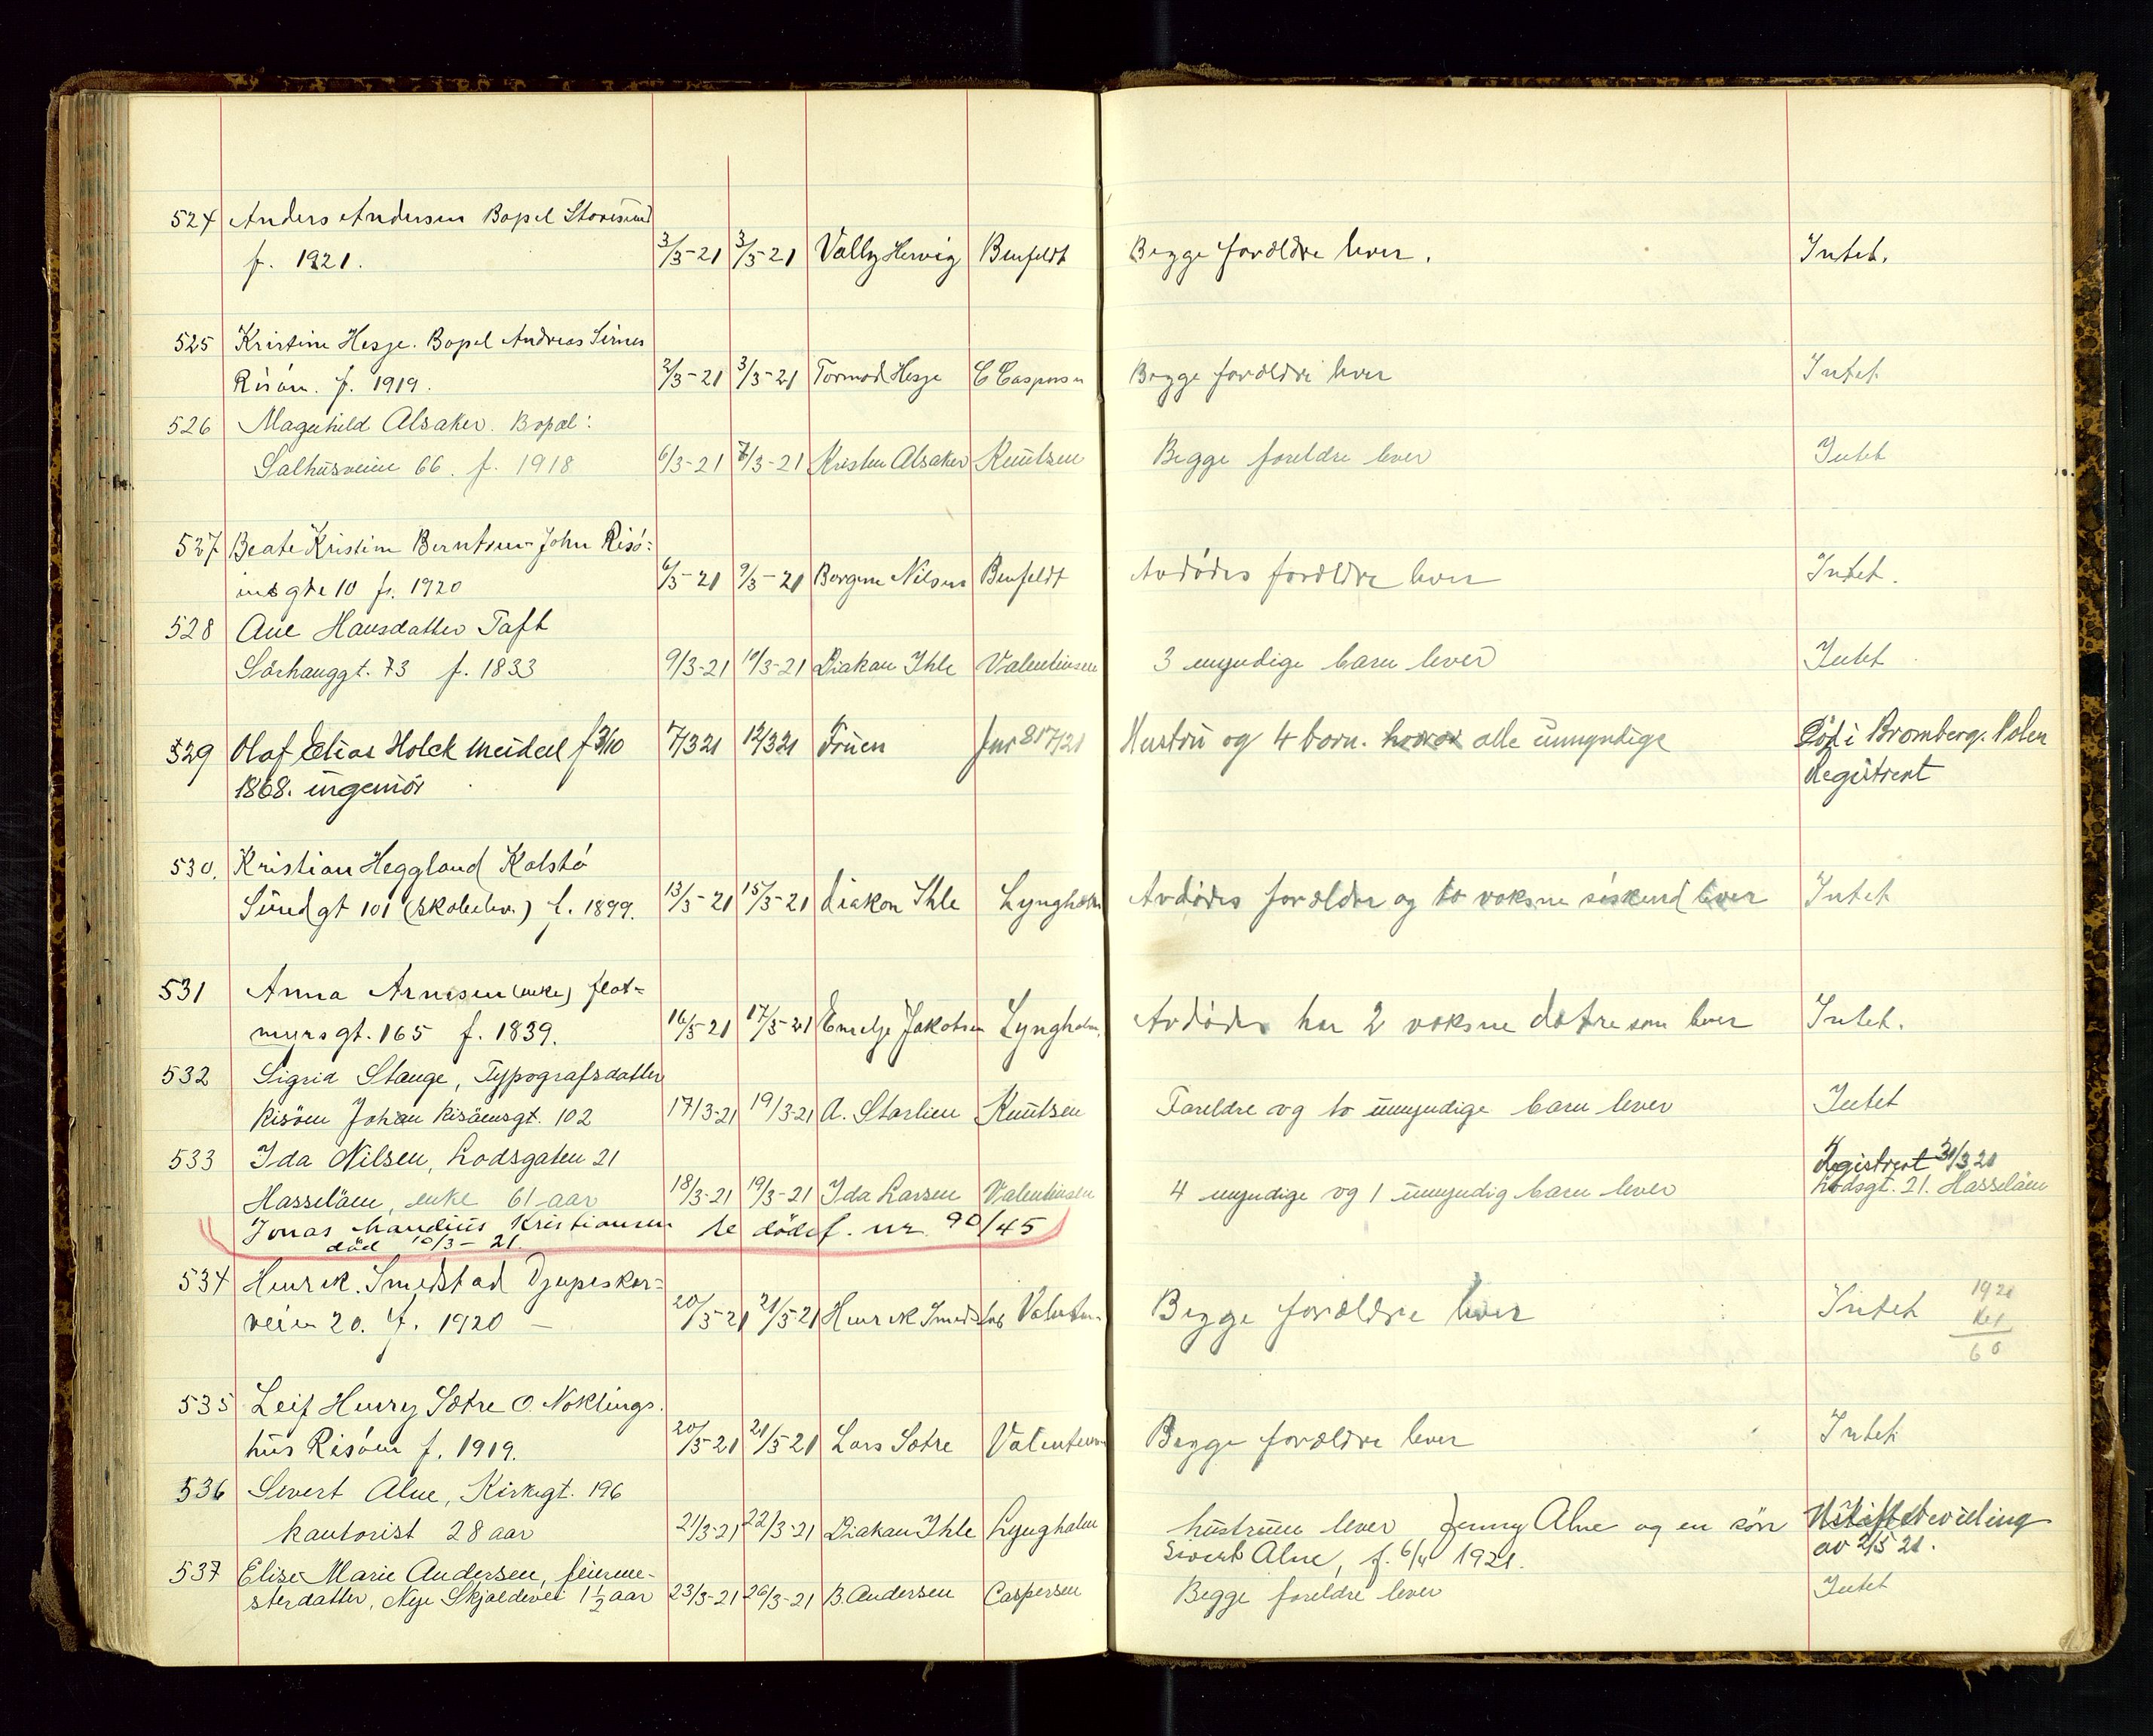 524 Anders Andersen Bopel Storesund
f. 1921. 3/3-21 3/3-21 Vally Hervig Benfeldt Begge forældre lever. Intet.
525 Kristine Hesje. Bopel Andreas Simes
Risöen. f. 1919. 2/3-21 3/3-21 Tormod Hesje C Caspersen Begge forældre lever Intet
526 Magnhild Alsaker. Bopæl:
Salhusveien 66. f. 1918 6/3-21 7/3-21 Kristen Alsaker Knutsen Begge foreldre lever Intet
527 Beate Kristine Berntsen John Risö=
ens gte 10 f. 1920 6/3-21 9/3-21 Borgine Nilsen Benfeldt Avdödes forældre lever Intet.
528 Ane Hansdatter Toft
Sörhauggt. 73 f. 1833 9/3-21 10/3-21 Diakon Ihle Valentinsen 3 myndige barn lever Intet
529 Olaf Elias Holck Meidell f 3/10 7/3 21 12/3 21 Fruen Jnr 817/21 Hustru og 4 born. alle umyndige Död i Bromberg. Polen
1868. ingeniör Registrert
530. Kristian Heggland Kolstö
Sundgt 101 (skoleelev.) f. 1899. 13/3-21 15/3-21 diakon Ihle Lyngholm Avdödes forældre og to voksne söskend lever Intet
531 Anna Arnesen (enke) flot=
myrsgt. 165 f. 1839. 16/3-21 17/3-21 Emelje Jakobsen Lyngholm. Avdöde har 2 voksne døtre som lever Intet.
532 Sigrid Stange, Typografsdatter
Risöen Johan Risöensgt. 102 17/3-21 19/3-21 A. Starlien Knutsen Foreldre og to umyndige barn lever Intet
533 Ida Nilsen, Lodsgaten 21 Registrert 31/3 21
Hasselöen, enke 61 aar 18/3-21 19/3-21 Ida Larsen Valentinsen 4 myndige og 1 umyndig barn lever Lodsgt. 21. Hasselöen
Jonas Mandius Kristiansen se dödsf. nr. 90/45
död 10/3-21.
534 Henrik Smedstad Djupeskar= 1921
veien 20. f. 1920 - 20/3-21 21/3-21 Henrik Smedstad Valentin. Begge forældre lever Intet
60
535 Leif Henry Sætre O. Nöklings.
hus Risöen f. 1919. 20/3-21 21/3-21 Lars Sætre Valentinsen Begge forældre lever Intet
536 Sivert Alne, Kirkegt. 196
kontorist 28 aar 21/3-21 22/3-21 Diakon Ihle Lyngholm hustruen lever Jenny Alne og en sön Uskiftetbevilling
Sivert Alne, f. 6/4 1921. av 2/5 21.
537 Elise Marie Andersen, feierme-
sterdatter, Nye Skjoldevei 1 1/2 aar 23/3-21 26/3-21 B. Andersen Caspersen Begge foreldre lever Intet